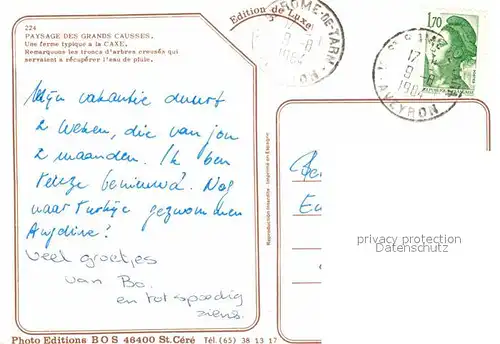 224
PAYSAGE DES GRANDS CAUSSES.
Une ferme typique a la CAXE.
Remarquons les troncs d'arbres creusés qui
servaient a récupérer l'eau de pluie.
Edition de Luxe
ROME-DE-TARN
1984
1,70
17
9-8
1984
AVEYRON
Mijn vakantie duurt
2 weken, die van jou
2 maanden. Ik ben
benieuwd. Nog
naar Turkije gezwommen
Veel groetjes
van Bo.
en tot spoedig
ziens.
Reproduction interdite - Imprimé en Espagne
privacy protection
Datenschutz
Photo Editions BOS 46400 St.Céré Tél. (65) 38 13 17